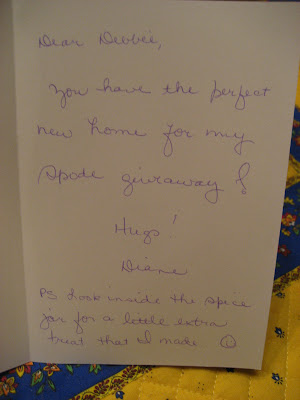 Dear Debbie,
You have the perfect
new home for my
Spode giveaway!
Hugs!
Diane
PS Look inside the spice
jar for a little extra
treat that I made ☺